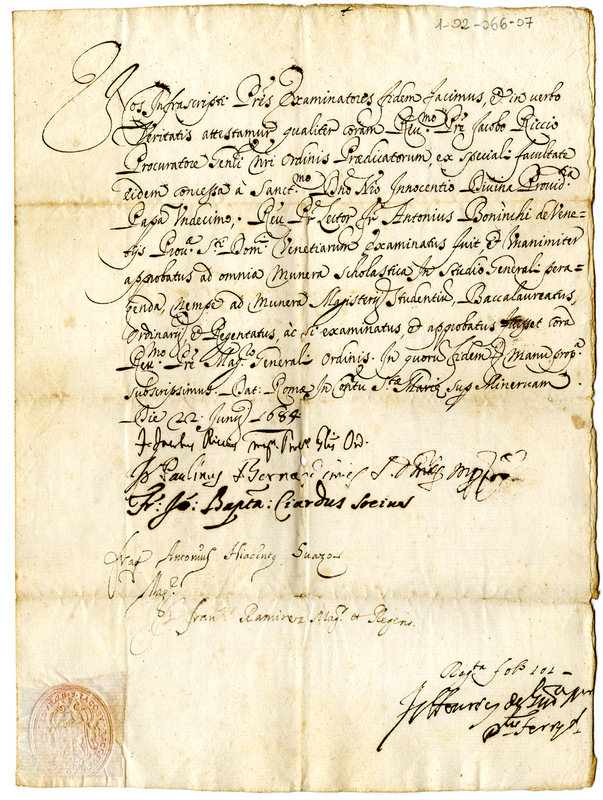 1-92-066-07
Nos Infrascripti Pr̃es Examinatores fidem facimus, et in verbo
Veritatis attestamur qualiter coram Reu.mo Pr̃e Jacobo Riccio
Procuratore Genli Nri Ordinis Prædicatorum, ex speciali facultate
eidem concessa à Sanct.mo Dno Nro Innocentio Divina Provid.a
Papa Undecimo, Reu. Pr. Lector Fr. Antonius Boninchi de Vene=
tijs Prou.æ S.ti Dom.ci Venetiarum examinatus fuit et Unanimiter
approbatus ad omnia Munera Scholastica In Studio Generali pera=
genda, Nempe ad Munera Magisterij Studentiũ, Baccalaureatus,
Ordinarij, et Regentatus, àc si examinatus et approbatus esset corã
Reu.mo Pr̃e Mag.ro Generali Ordinis. In quorũ fidem Manu prop.a
subscripsimus. Dat. Romæ In Contu S.tæ Mariæ sup Mineruam.
Die 22 Junij 1684
Fr. Paulinus Bernard
Fr: Jo: Bapta: Ciardus socius
Antonius Hiacintus Suazo
Mag.r
Fr Fran.cus Ramirez Mag. et Regens.
Reg.ta folo 101